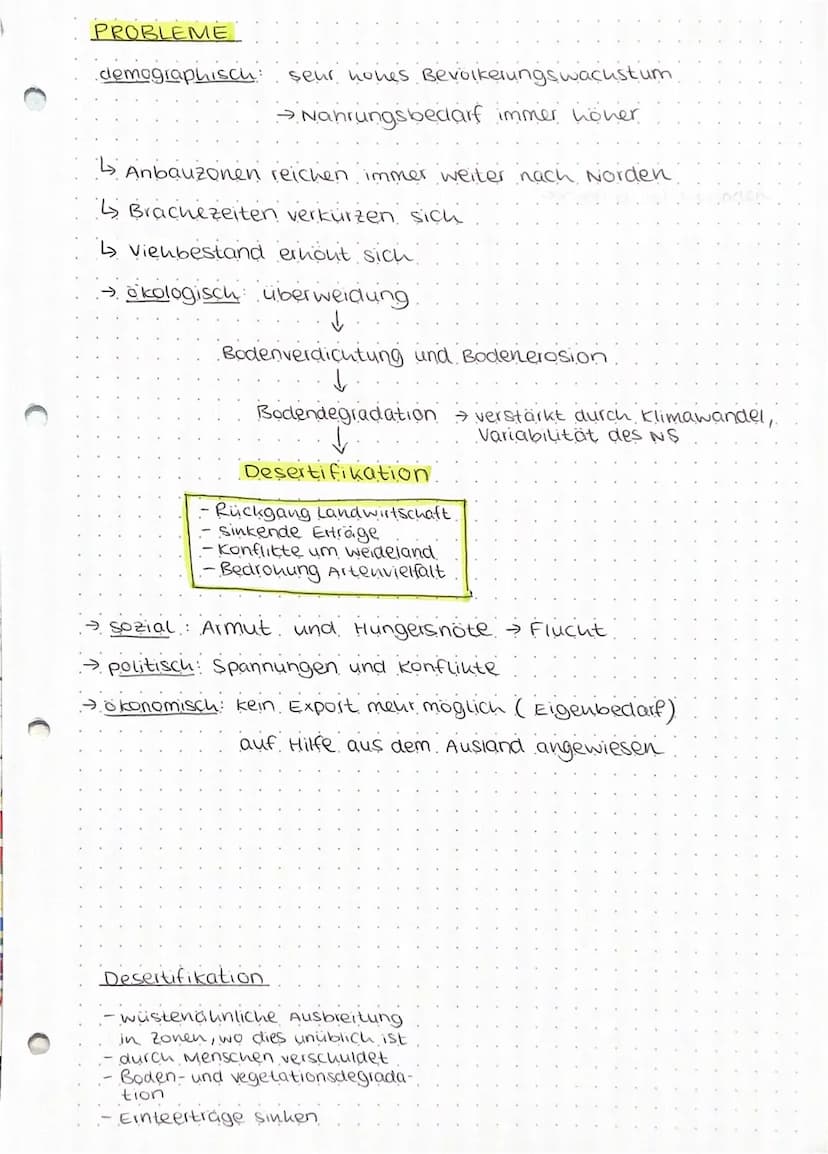 PROBLEME
demographisch: sehr hohes Bevölkerungswachstum
→ Nahrungsbedarf immer höher
↳ Anbauzonen reichen immer weiter nach Norden
↳ Brachezeiten verkürzen sich
↳ Viehbestand erhöht sich
→ ökologisch: überweidung
↓
Bodenverdichtung und Bodenerosion
↓
Bodendegradation → verstärkt durch Klimawandel,
Variabilität des NS
↓
Desertifikation
- Rückgang Landwirtschaft
- sinkende Erträge
- Konflikte um Weideland
- Bedrohung Artenvielfalt
→ sozial: Armut und Hungersnöte → Flucht
→ politisch: Spannungen und Konflikte
→ ökonomisch: kein Export mehr möglich (Eigenbedarf)
auf Hilfe aus dem Ausland angewiesen
Desertifikation
- wüstenähnliche Ausbreitung
in Zonen, wo dies unüblich ist
- durch Menschen verschuldet
- Boden- und vegetationsdegrada-
tion
- Ernteerträge sinken